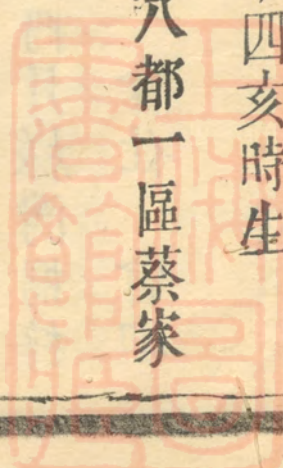 四亥時生
八都一區蔡家